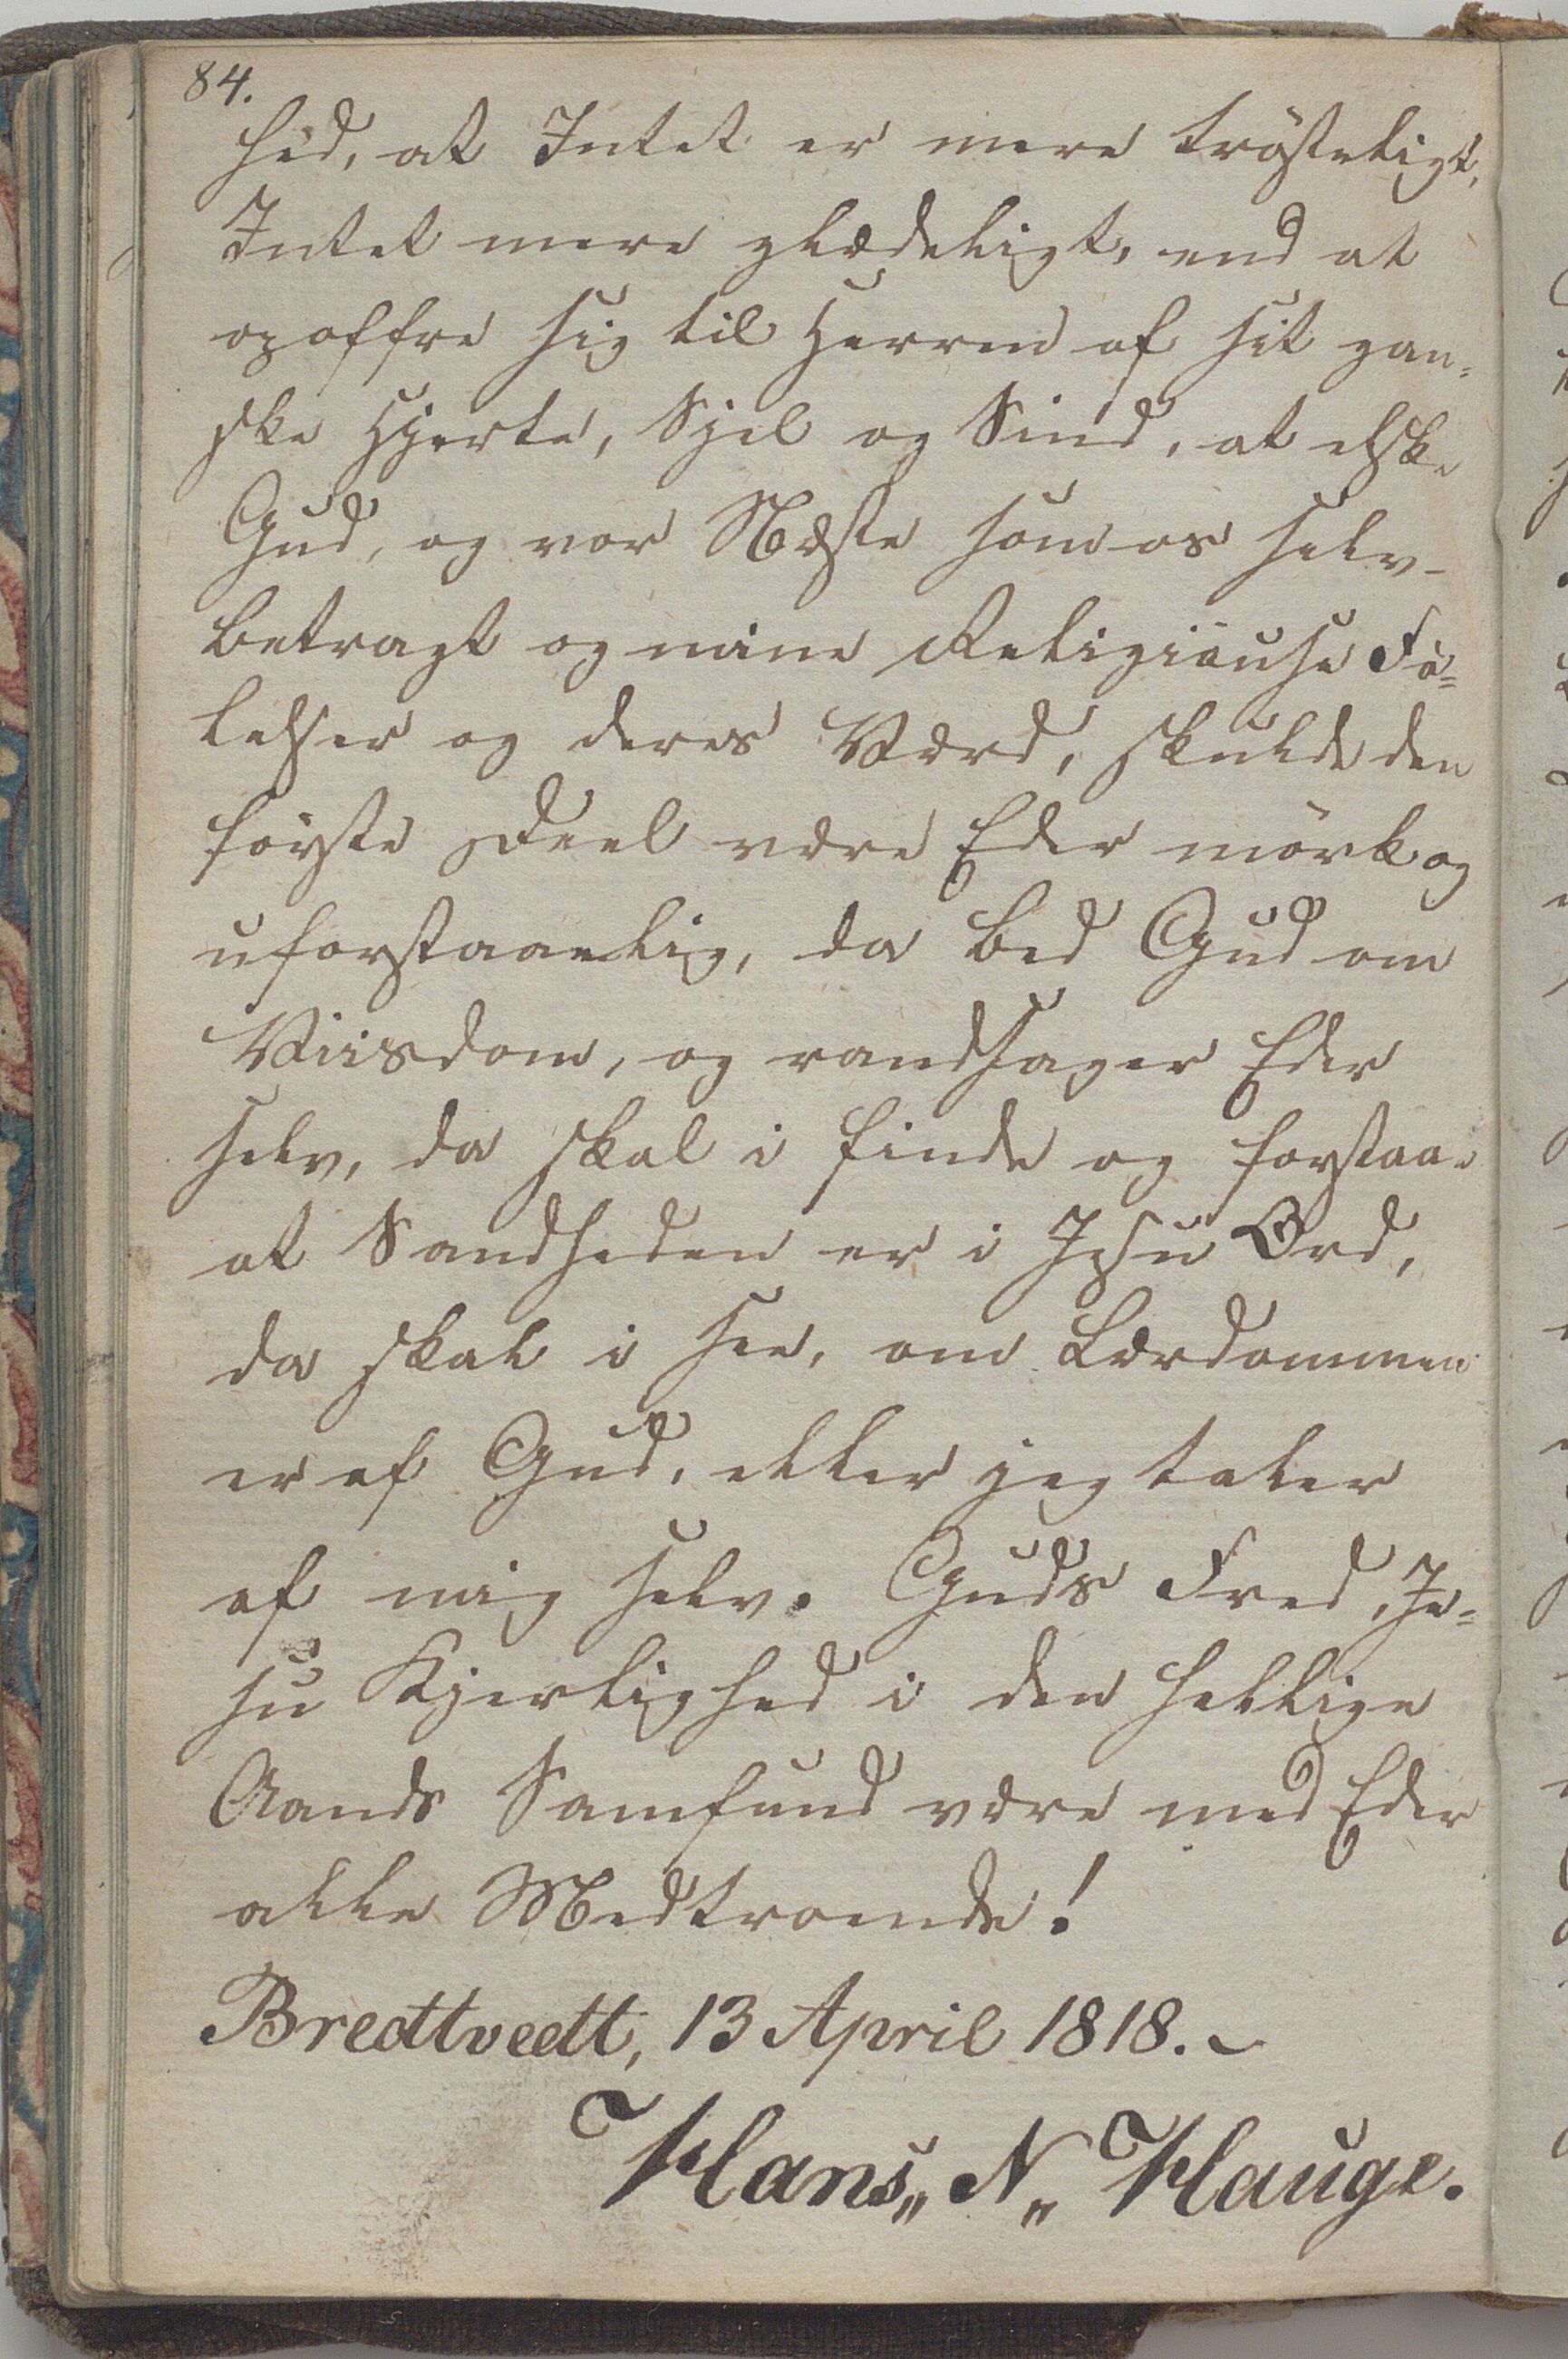 84.
hed, at Intet er mere trösteligt,
Intet mere glædeligt, end at
opoffre sig til Herren af sit gan-
ske Hjerte, Sjel og Sind, at elske
Gud, og vor Næste som os selv-
betragt og mine Religiöuse Fö-
lelser og deres Værd, skulde den
förste Deel være Eder mörk og
uforstaaelig, da bed Gud om
Viisdom, og randsager Eder
selv, da skal i finde og forstaae
at Sandheden er i Jesu Ord,
da skal i see, om Lærdommen
er af Gud, eller jeg taler
af mig selv. Guds Fred, Je-
su Kjerlighed i den hellige
Aands Samfund være med Eder
alle Medtroende!
Bredtvedt, 13 April 1818.-
Hans„ N„ Hauge.